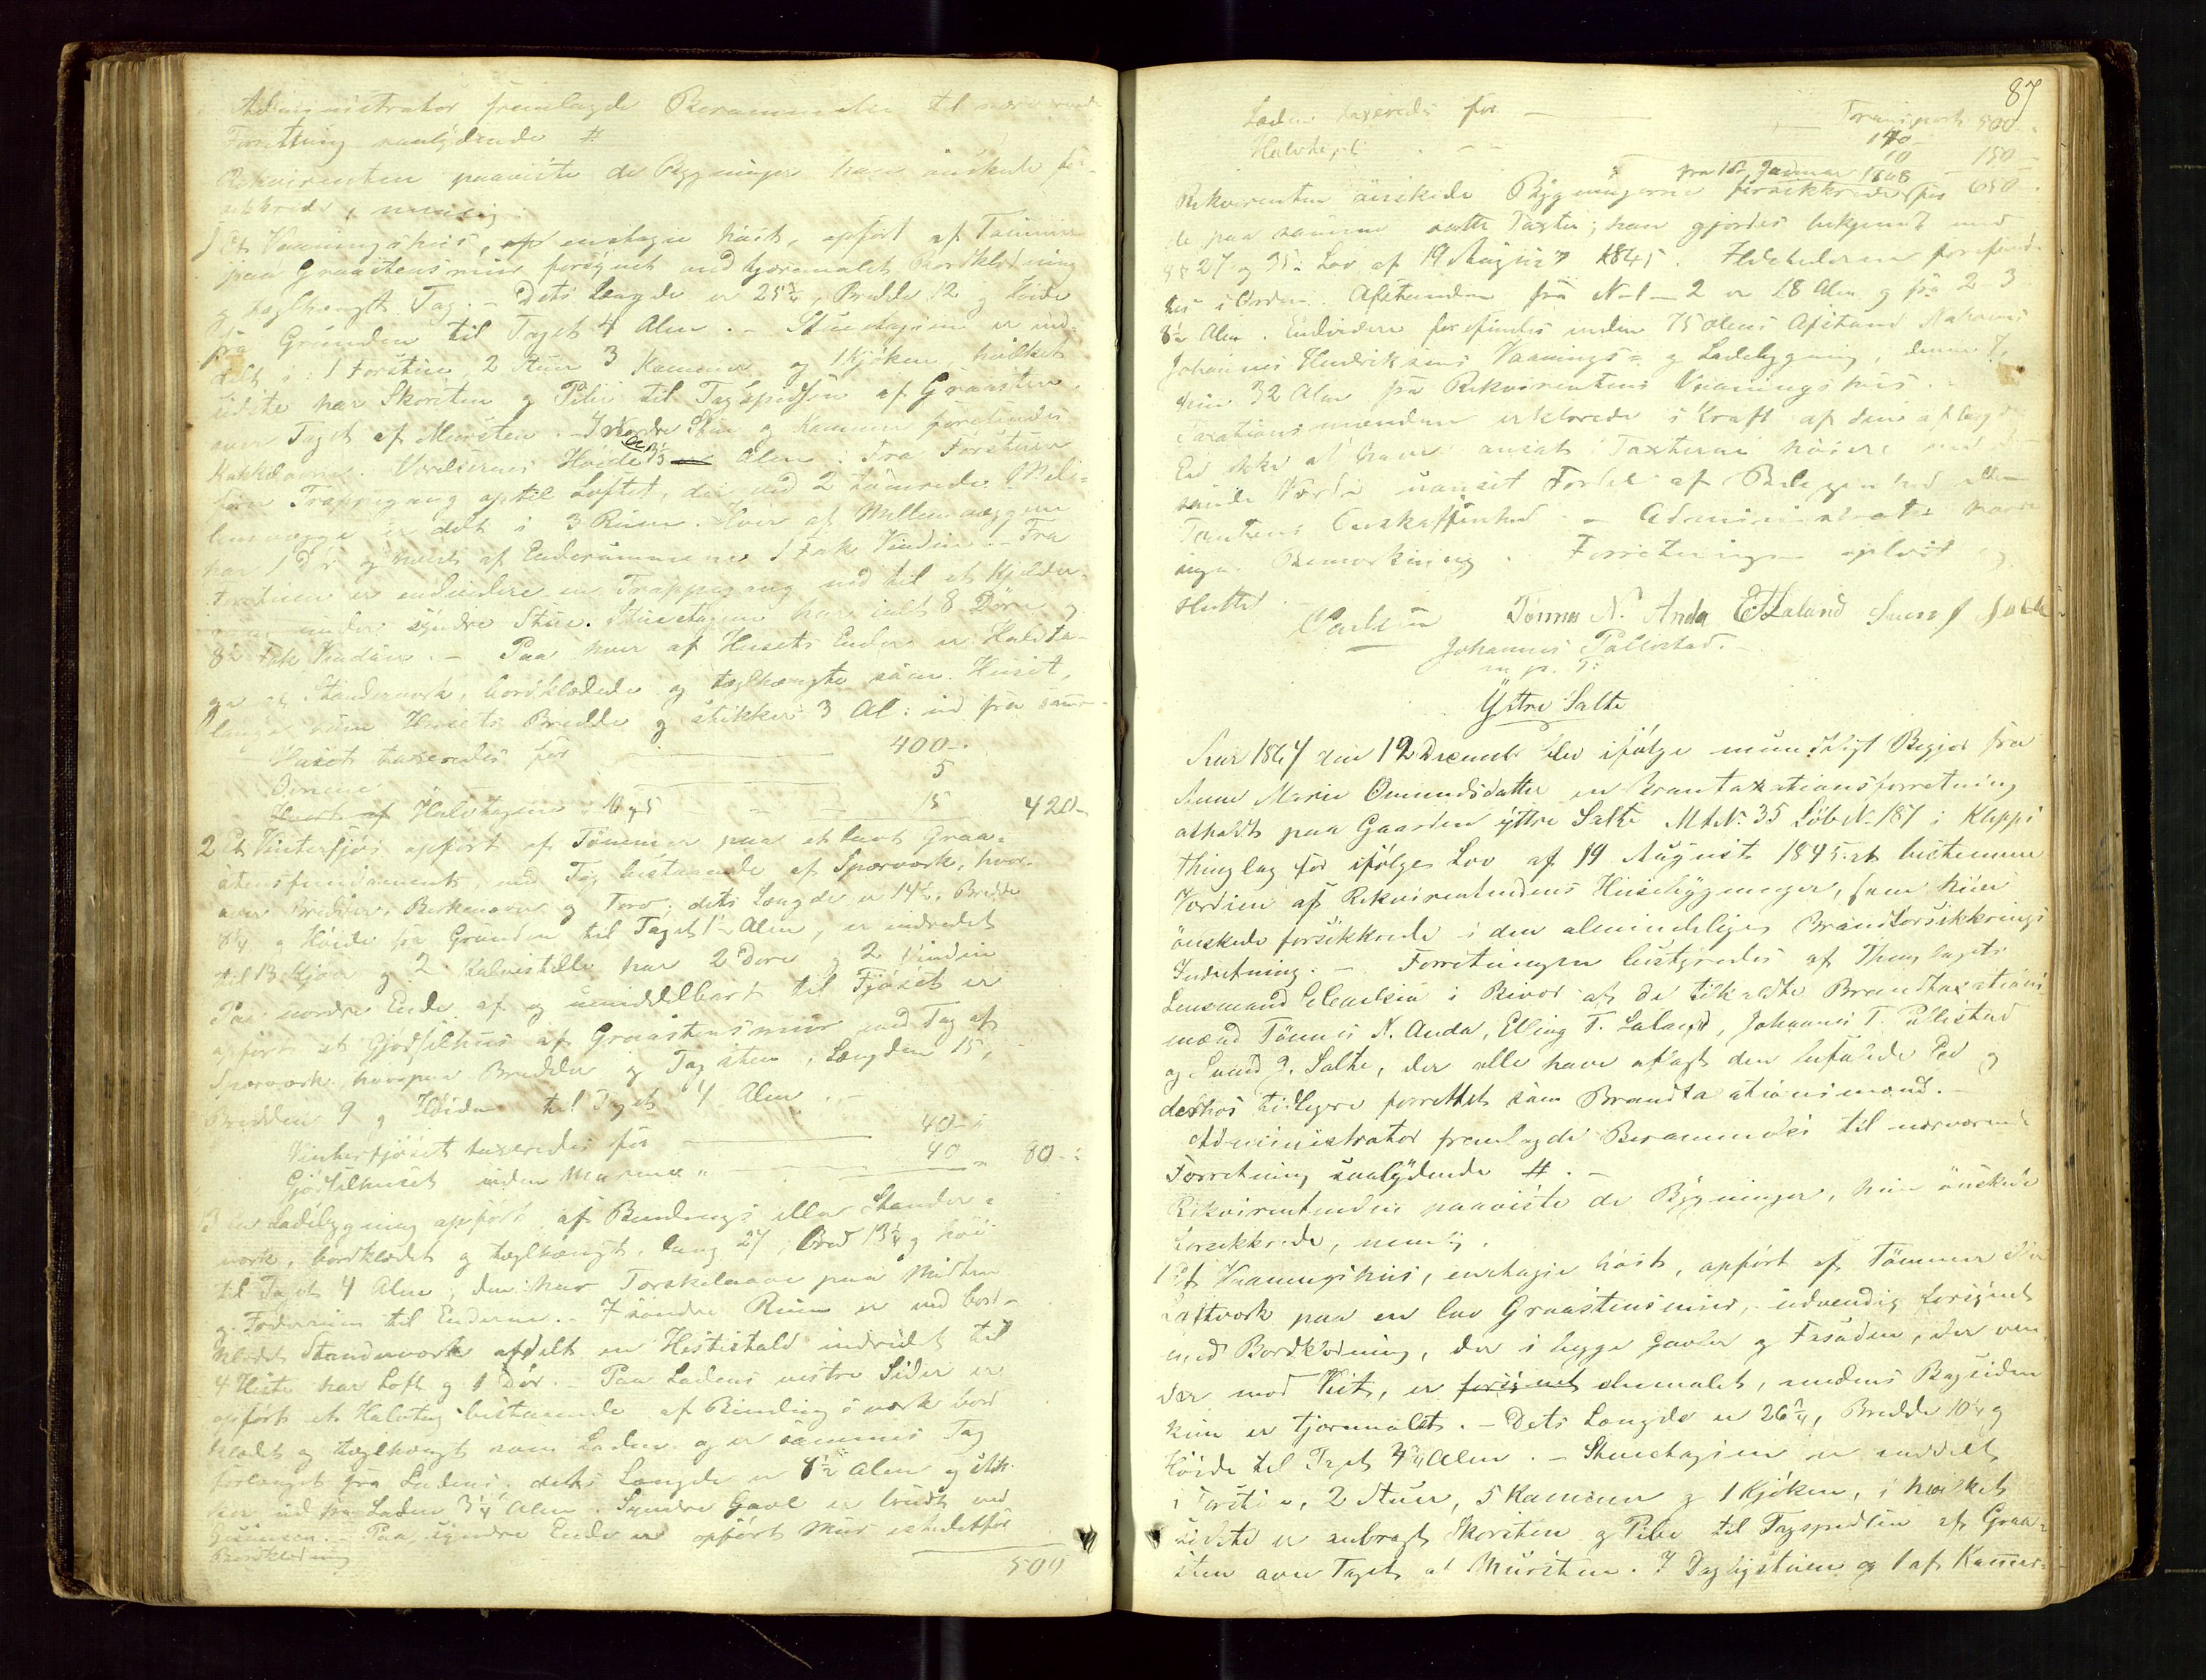 Administrator fremlagde Berammelse til nærværende
Forretning saalydende #
Rekvirenten paaviste de Bygninger han önskede for-
sikkrede, nemlig:
1 Et Vaaningshus, en etagie høit, opfört af Tömmer
paa Graastensmur forsynet med tjæremalet Bordklædning
g teglhængt Tag. – Dets Længde er 25¾, Bredde 12 g Höide
fra Grunden til Taget 4 Alen. – Stueetagien er ind-
delt i: 1 Forstue, 2 Stuer 3 Kammer og 1 Kjöken, hvilket
sidste har Skorsten g Pibe til Tagspidsen af Graasten
over Taget af Mursten. – I Nordre Stue og Kammer forefindes
Kakkelovne. Værelsernes Höide er 3⅓ Alen. Fra Forstuen
förer Trappegang op til Loftet, der ved 2 tömrede Mel-
lemvægge er delt i 3 Rum. Hver af Mellemvæggene
har 1 Dör og hvert af Enderummene 1 Fak Vinduer. – Fra
Forstuen er endvidere en Trappegang ned til et Kjelder-
rum under söndre Stue. Stueetagien har ialt 8 Döre g
8½ Fak Vinduer. – Paa hver af Husets Ender er Halvta-
ge af Standerverk, bordklædede og teglhængte som Huset,
lange som Husets Bredde g stikker 3 Al: ud fra samme
Huset taxeredes for 400 –
Ovnene 5
Hvert af Halvtagene 10 g 5 15 420 –
2 Et Vinterfjös opfört af Tömmer paa et lavt Graa-
stensfundament, med Tag bestaaende af Sperværk, hvor-
over Bredder, Birkenæver g Torv; dets Længde er 14½, Bredde
8¼ g Höide fra Grunden til Taget 1½ Alen, er indredet
til 13 Kjöer g 2 Kalvestelle har 2 Döre g 2 Vinduer
Paa nordre Ende af og umiddelbart til Fjöset er
opfört et Gjödselhus af Graastensmur med Tag af
Sperværk, hvorpaa Bredder g Tagsten, Længden 15,
Bredden 9 g Höiden til Taget 4 Alen. –
Vinterfjöset taxeredes for 40 –
Gjödselhuset uden Murene " 40 " 80 –
3 En Ladebygning opfört af Bindings eller Stander-
værk, bordklædet g teglhængt, lang 27, bred 13¼ g höi
til Taget 4 Alen, den har Torskelaave paa Midten
g. Foderrum til Enderne. – I söndre Rum er ved bord-
klædt Standerværk afdelt en Hestestald indredet til
4 Heste har Loft g 1 Dör. – Paa Ladens vestre Sider er
opfört et Halvtag bestaaende af Bindingsværk bord
klædt og teglhængt som Laden og er sammes Tag
forlænget fra Ladens; dets Længde er 8½ Alen g stik-
ker ud fra Laden 3¼ Alen. Syndre Gavl er brudt ved
Paa syndre Ende er opfört Mur istedetfor
Bordklædning
500

87
Transport 500 –
Laden taxeredes for 140 –
Halvtaget 10 – 150 –
650 –
Rekvirenten önskede Bygningerne forsikkrede fra 1ste Januar 1868 for
de paa samme satte Taxter; han gjordes bekjendt med
§§ 27 og 35 i Lov af 19 August 1845. Ildstederne forefand-
tes i Orden. Afstanden fra No 1 – 2 er 18 Alen g fra 2 3
8½ Alen. Endvidere forefindes inden 75 Alens Afstand Naboens
Johannes Hendriksens Vaanings- g Ladebygning, denne
kun 32 Alen fra Rekvirentens Vaaningshus.
Taxationsmændene erklærede i Kraft af sin aflagte
Ed ikke at have ansat Taxterne höiere end
sande Værdi uanset Fordel af Beliggenhed eller
Tomtens Beskaffenhed. – Administrator havde
ingen Bemærkning. Forretningen oplæst og
sluttet
Carlsen Tönnes N. Anda E T Laland Svend J Salte
Johannes Pollestad
m. p. P:
Yttre Salte
Aar 1867 den 12 Decembr blev ifölge mundtligt Begjær fra
Anne Marie Omundsdatter en Branntaxationsforretning
afholdt paa Gaarden yttre Salte Mt.No. 35 Löb No 187 i Klepps
Thinglag for ifölge Lov af 19 August 1845 at bestemme
Værdien af Rekvirentindens Husebygninger, som hun
önskede forsikkrede i den almindelige Brandforsikkrings
Indretning. – Forretningen bestyredes af Thinglagets
Lensmand E Carlsen i Bivær af de tilkaldte Brandtaxations-
mænd Tönnes N. Anda, Elling T. Laland, Johannes T. Pollestad
og Svend J. Salte, der alle have aflagt den befalede Ed g
derhos tidligere forrettet som Brandtaxationsmænd. –
Administrator fremlagde Berammelsen til nærværende
Forretning saalydende #. –
Rekvirentinden paaviste de Bygninger, hun önskede
forsikkrede, nemlig.
1 Et Vaaningshus, en etagie höit, opfört af Tömmer eller
Laftværk paa en lav Graastensmur, udvendig forsynet
med Bordklædning, der i begge Gavler g Fasaden, der ven-
der mod Vest, er forsynet oliemalet, medens Bagsiden
kun er tjæremalet. – Dets Længde er 26¾, Bredde 10¼ g
Höide til Taget 4¼ Alen. – Stueetagien er inddelt
i Forstue, 2 Stuer, 5 Kammer g 1 Kjöken, i hvilket
sidste er anbragt Skorsten g Pibe til Tagspidsen af Graa-
sten over Taget af Mursten. I Dagligstuen og 1 af Kamme-